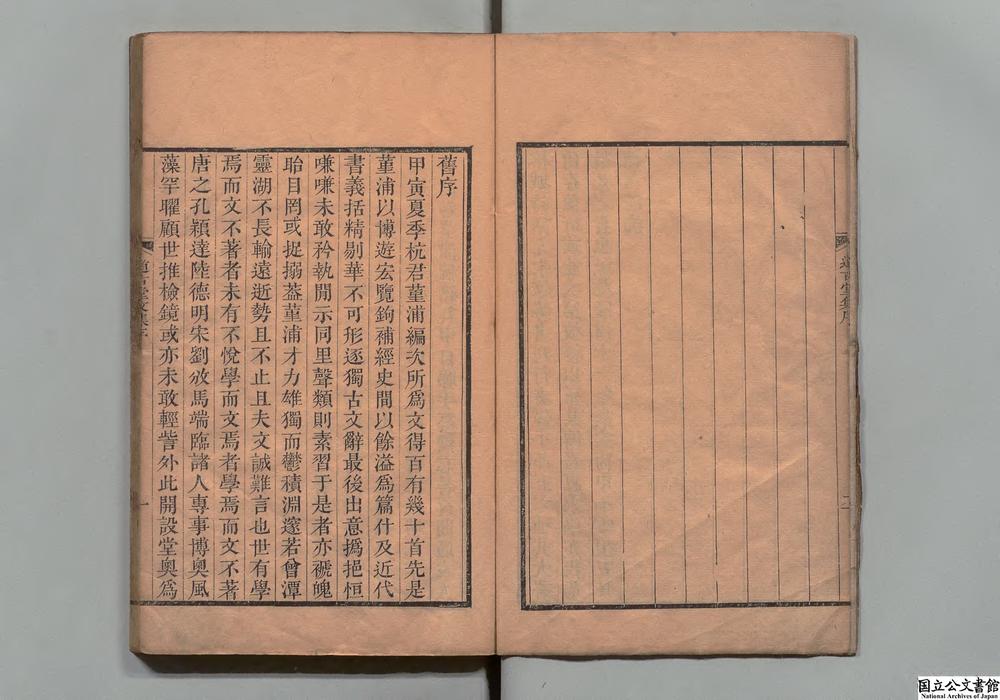 道古堂集序
二
舊序
甲寅夏季杭君菫浦編次所爲文得百有幾十首先是
菫浦以博遊宏覽鉤補經史間以餘溢爲篇什及近代
書義括精剔華不可形逐獨古文辭最後出意撝挹恒
嗛嗛未敢矜執閒示同里聲類則素習于是者亦禠魄
眙目罔或捉搦葢菫浦才力雄獨而鬱積淵邃若曾潭
靈湖不長輸遠逝勢且不止且夫文誠難言也世有學
焉而文不著者未有不悅學而文焉者學焉而文不著
唐之孔穎達陸德明宋劉攽馬端臨諸人專事博奧風
藻罕曜顧世推檢鏡或亦未敢輕訾外此開設堂奧爲
道古堂文集序
一
国立公文書館
National Archives of Japan